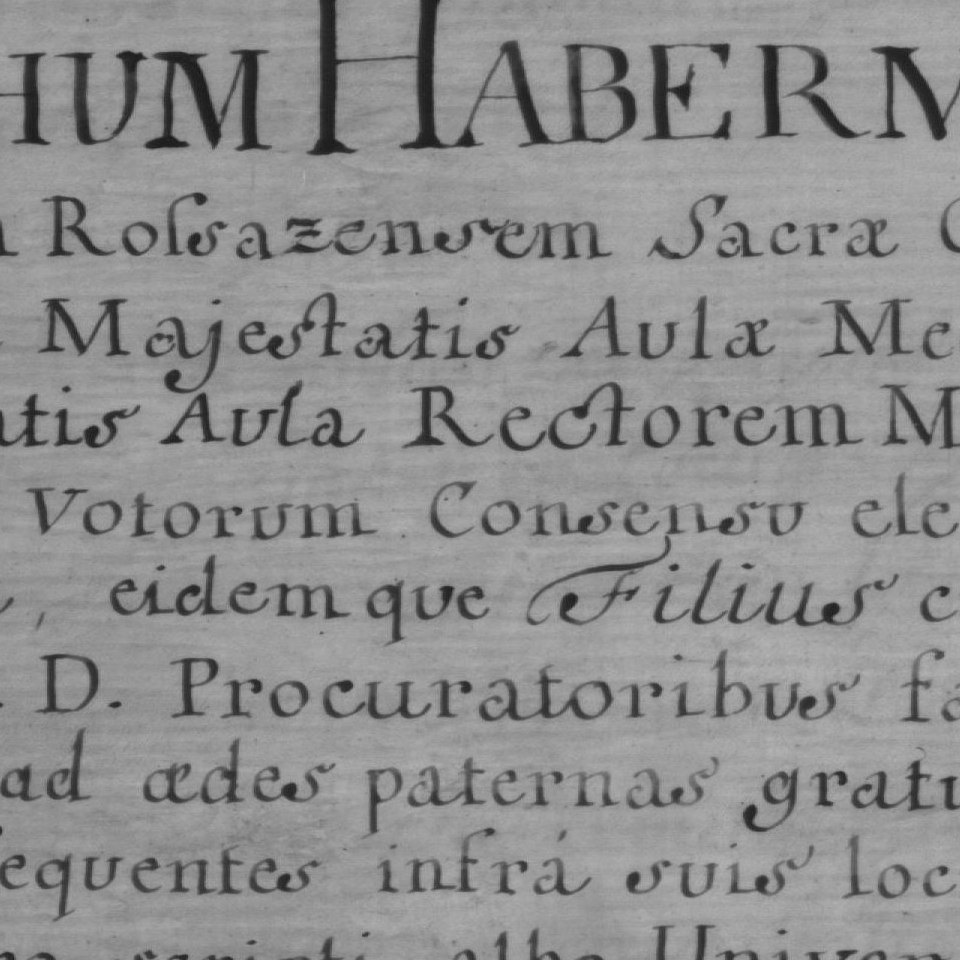 HUM HABERM
Rossazensem Sacræ C
Majestatis Aulæ Me
tis Aula Rectorem M
Votorum Consensu ele
, eidemque Filius c
. D. Procuratoribus fa
ad ædes paternas gratu
sequentes infrá suis loc
scripti albo Univer